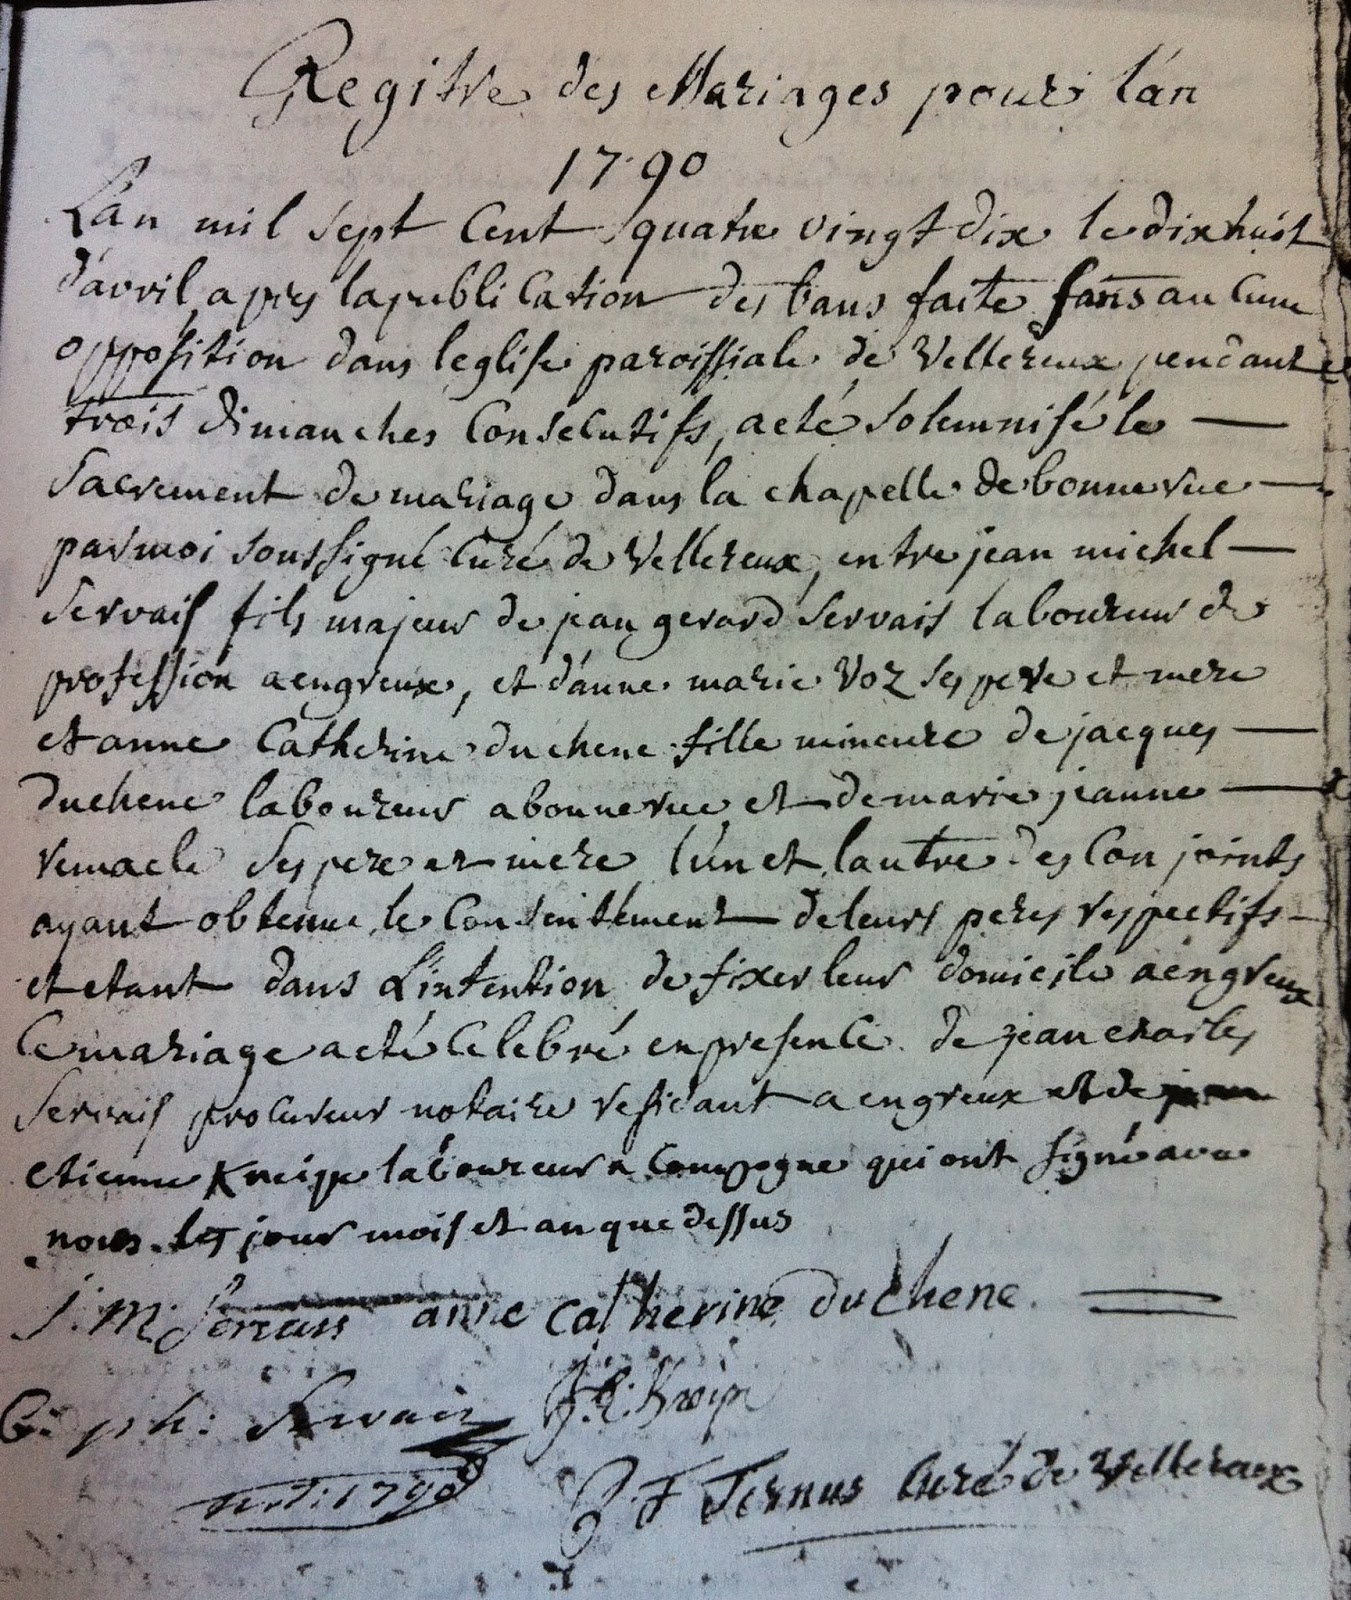 Regitre des Mariages pour l'an
1790
L'an mil sept Cent quatre vingt dix le dixhuit
d'avril apres lapublication des bans faite sans au Cune
opposition dans leglise paroissiale de Vellereux pendant
trois dimanches Consecutifs, a eté solemnisé le —
Sacrement de mariage dans la chapelle de bonnerue —
par moi soussigné Curé de Vellereux, entre jean michel —
Servais fils majeur de jean gerard Servais laboureur de
profession a engreux, et d'anne marie Voz ses pere et mere
et anne Catherine duchene fille mineure de jacques —
duchene laboureur a bonnerue et de marie jeanne —
remacle ses pere et mere l'un et lautre des Con joints
ayant obtenue le Consentement de leurs peres respectifs —
et etant dans L'intention de fixer leur domicile a engreux
Ce mariage a eté Celebré en presence de jean charles
Servais procureur notaire residant a engreux et de
etienne Kneipe laboureur a Compogne qui ont signé avec
nous les jour mois et an que dessus
J: M: Servais anne catherine duchene
ph: Servais J: E: Kneip
1790
J. F Ternus Curé de Vellereux